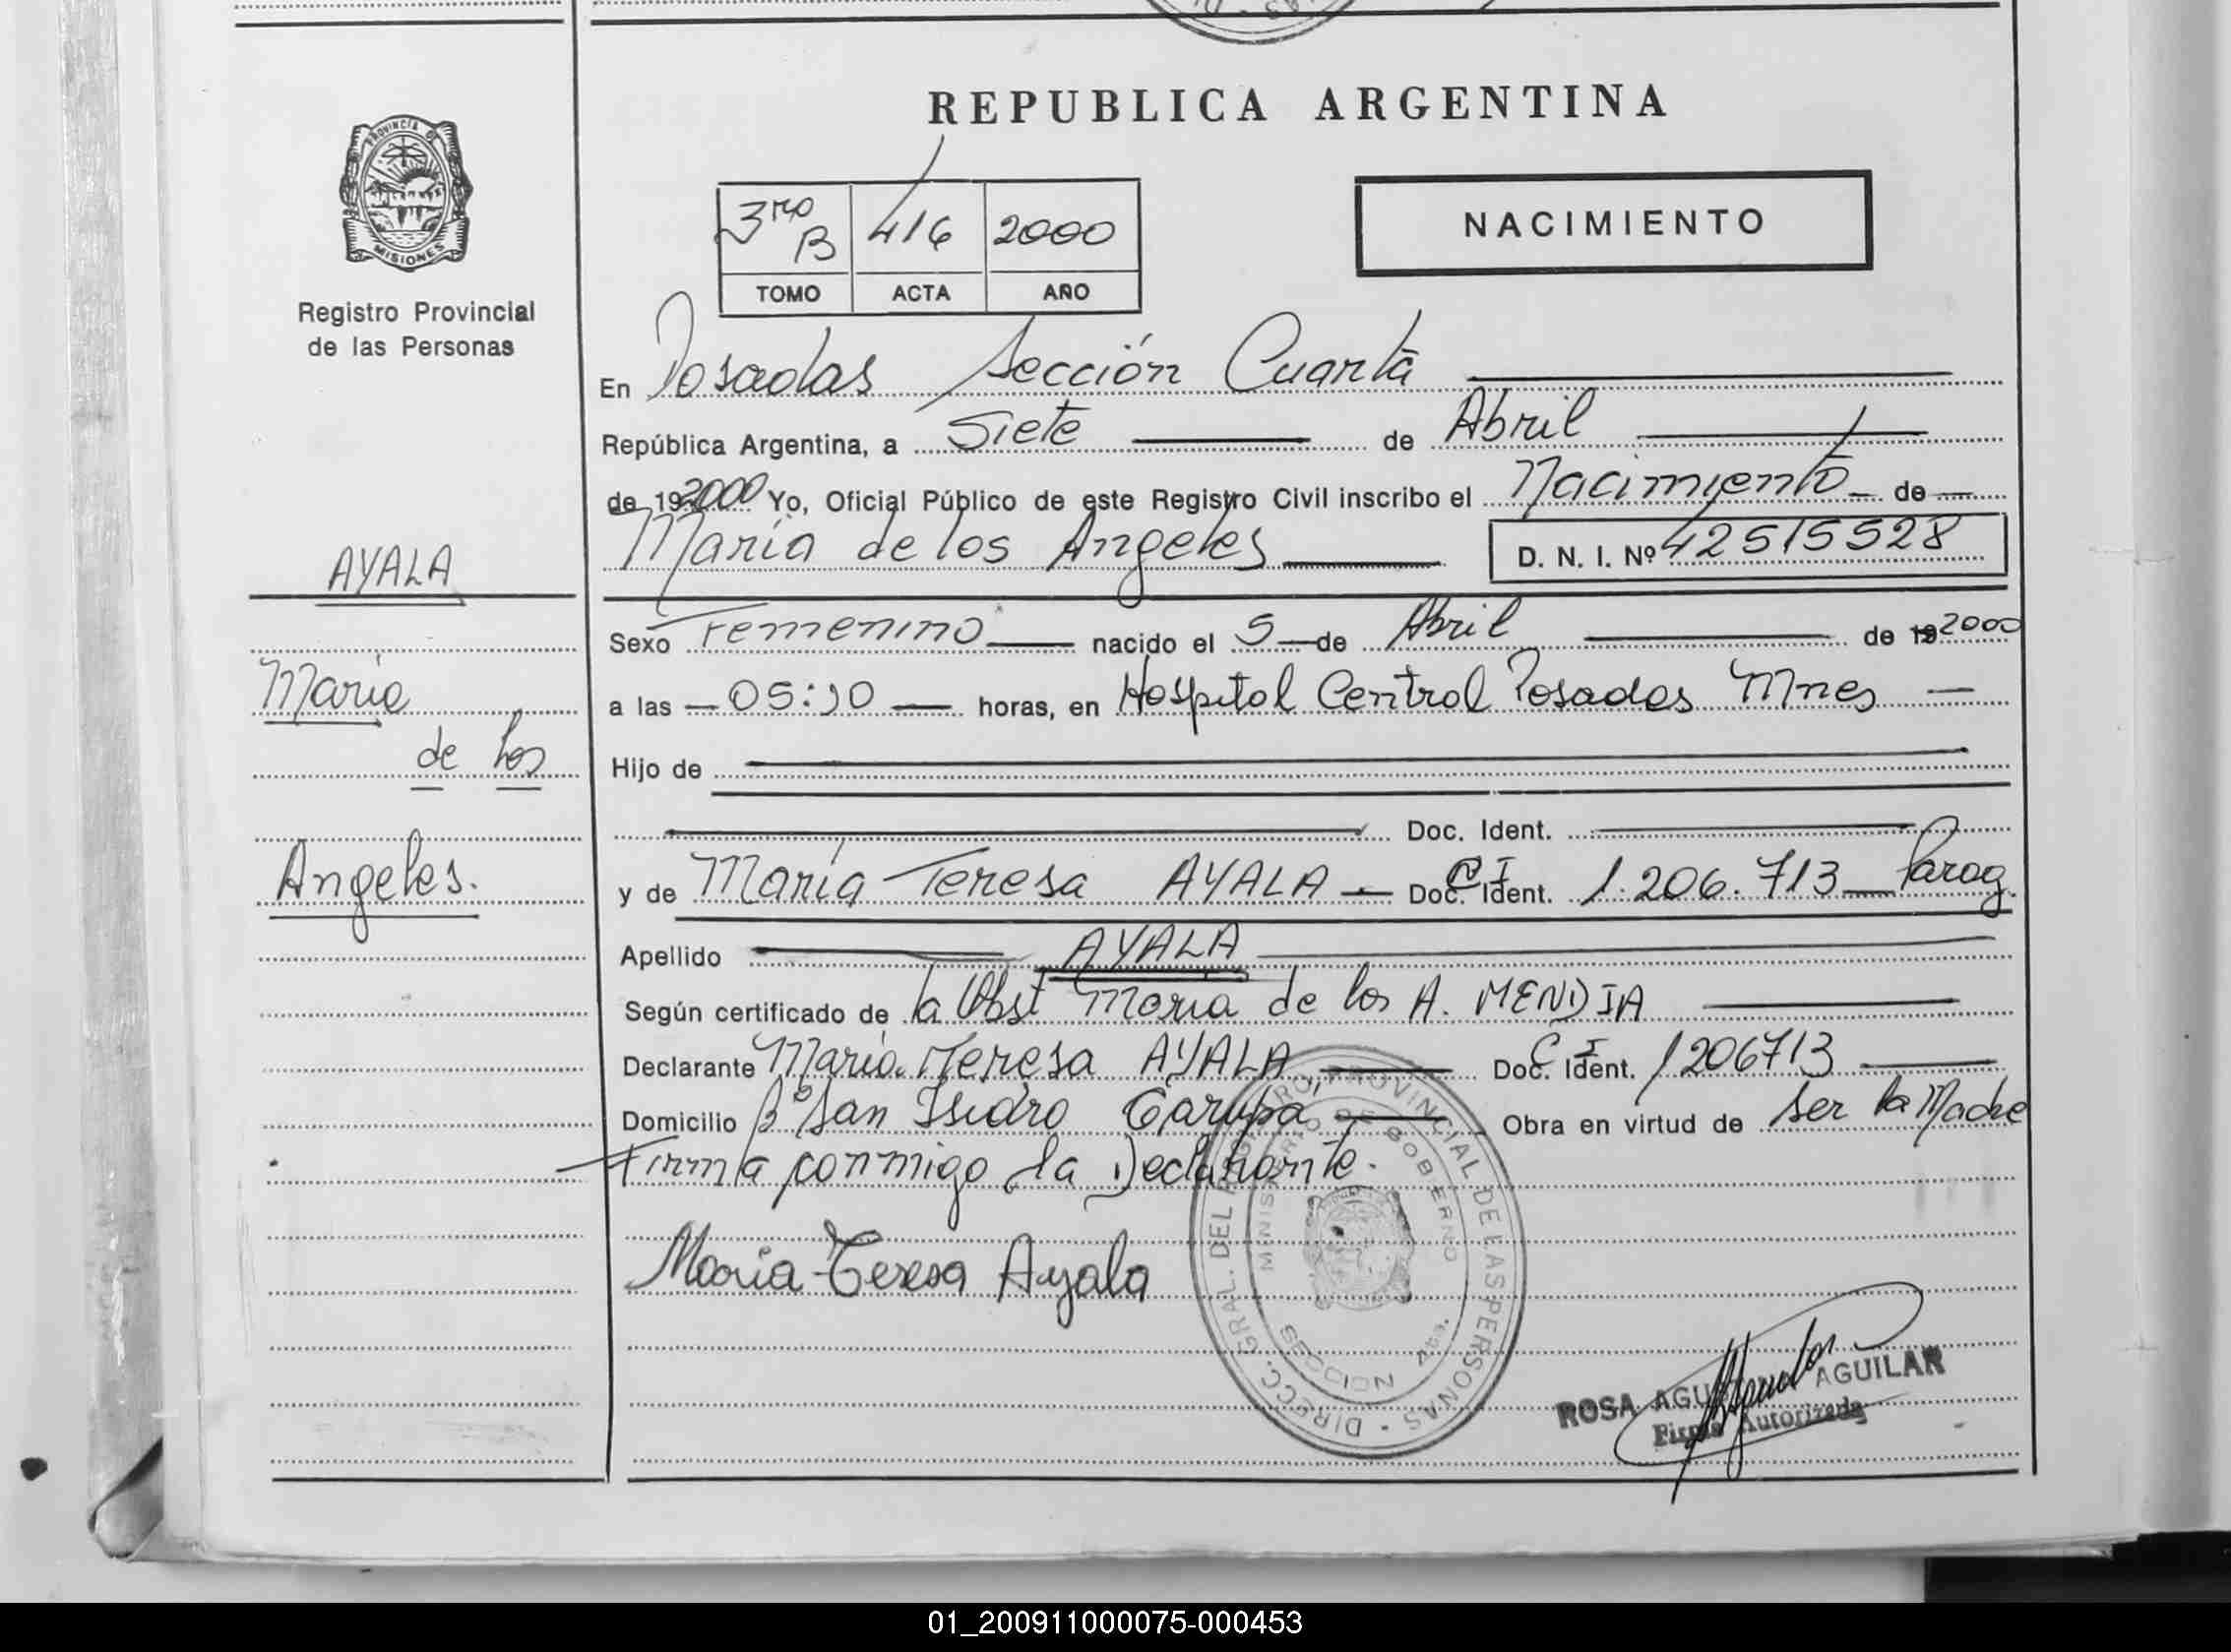 REPUBLICA ARGENTINA
PROVINCIA DE
MISIONES
Registro Provincial
de las Personas
3ro B 416 2000
TOMO ACTA AÑO
NACIMIENTO
En Posadas Sección Cuarta
República Argentina, a Siete de Abril
de 19 2000 Yo, Oficial Público de este Registro Civil inscribo el Nacimiento de
María de los Angeles D. N. I. Nº 42515528
AYALA
María
de los
Angeles.
Sexo Femenino nacido el 5 de Abril de 19 2000
a las 05:10 horas, en Hospital Central Posadas Mnes
Hijo de
Doc. Ident.
y de María Teresa AYALA Doc. Ident. C I 1.206.713 Parag.
Apellido AYALA
Según certificado de la Obst María de los A. MENDIA
Declarante María Teresa AYALA Doc. Ident. C I 1206713
Domicilio Bº San Isidro Garupa, Obra en virtud de ser la Madre
Firma conmigo la Declarante.
María Teresa Ayala
DIRECC. GRAL. DEL REGISTRO PROVINCIAL DE LAS PERSONAS
MINISTERIO DE GOBIERNO
SECCION
ROSA AGUILAR
Firma Autorizada
01_200911000075-000453